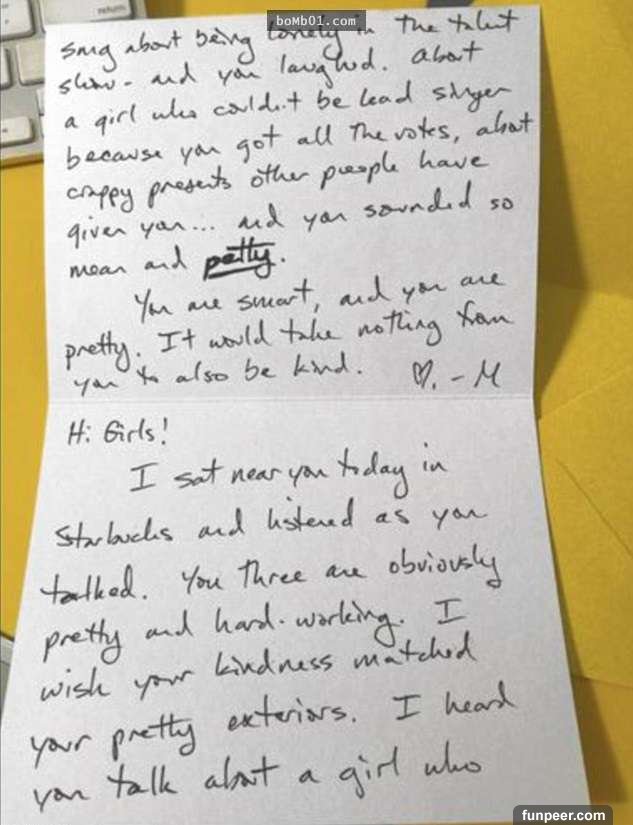 boMb01.com
song about being lonely in the talent
show - and you laughed. About
a girl who couldn't be lead singer
because you got all the votes, about
crappy presents other people have
given you... and you sounded so
mean and petty.
You are smart, and you are
pretty. It would take nothing from
you to also be kind. ♡. - M
Hi Girls!
I sat near you today in
Starbucks and listened as you
talked. You three are obviously
pretty and hard-working. I
wish your kindness matched
your pretty exteriors. I heard
you talk about a girl who
funpeer.com